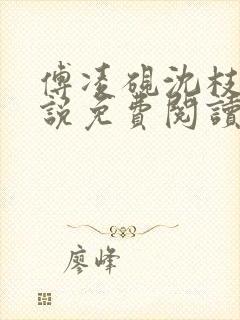 傅凌砚沈枝
說免費閱讀
廖峰